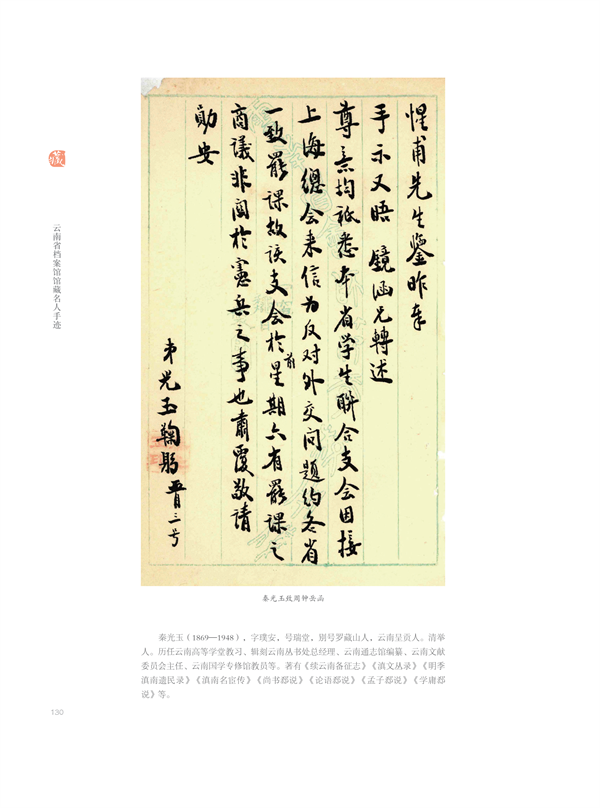 惺甫先生鑒昨奉
手示又晤 鏡涵兄轉述
尊意均祗悉本省学生联合支会因接
上海總会来信为反对外交问题约各省
一致罷課故该支会於前星期六有罷課之
商議非関於憲兵之事也肅覆敬请
勛安
弟光玉鞠躬 三号
藏
云南省档案馆馆藏名人手迹
秦光玉致周钟岳函
秦光玉（1869—1948），字璞安，号瑞堂，别号罗藏山人，云南呈贡人。清举
人。历任云南高等学堂教习、辑刻云南丛书处总经理、云南通志馆编纂、云南文献
委员会主任、云南国学专修馆教员等。著有《续云南备征志》《滇文丛录》《明季
滇南遗民录》《滇南名宦传》《尚书郄说》《论语郄说》《孟子郄说》《学庸郄
说》等。
130